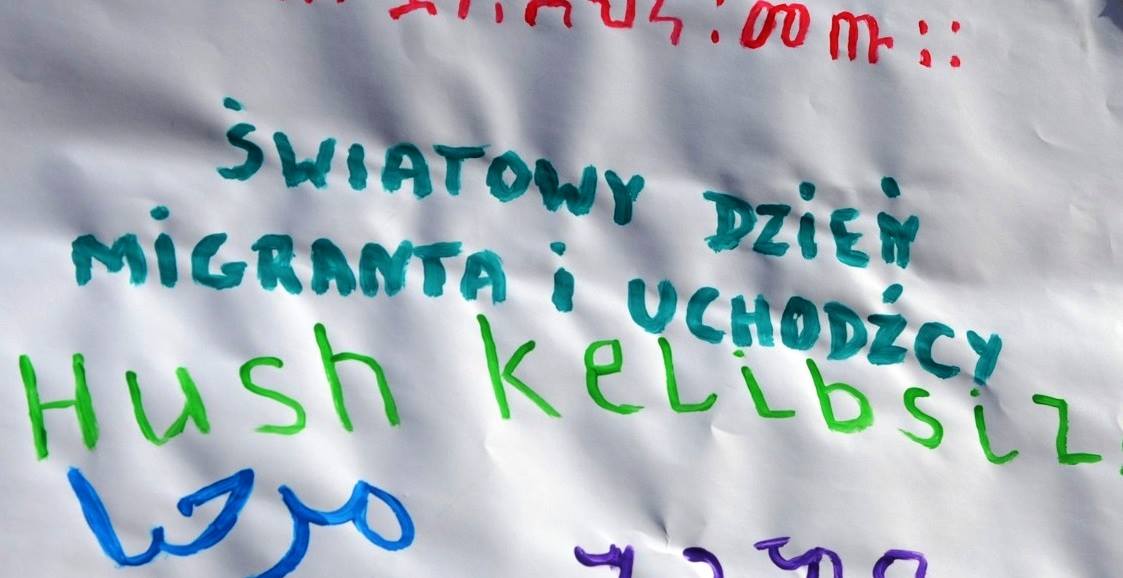 ŚWIATOWY DZIEŃ
MIGRANTA i UCHODŹCY
Hush keLibsiz
مرحبا